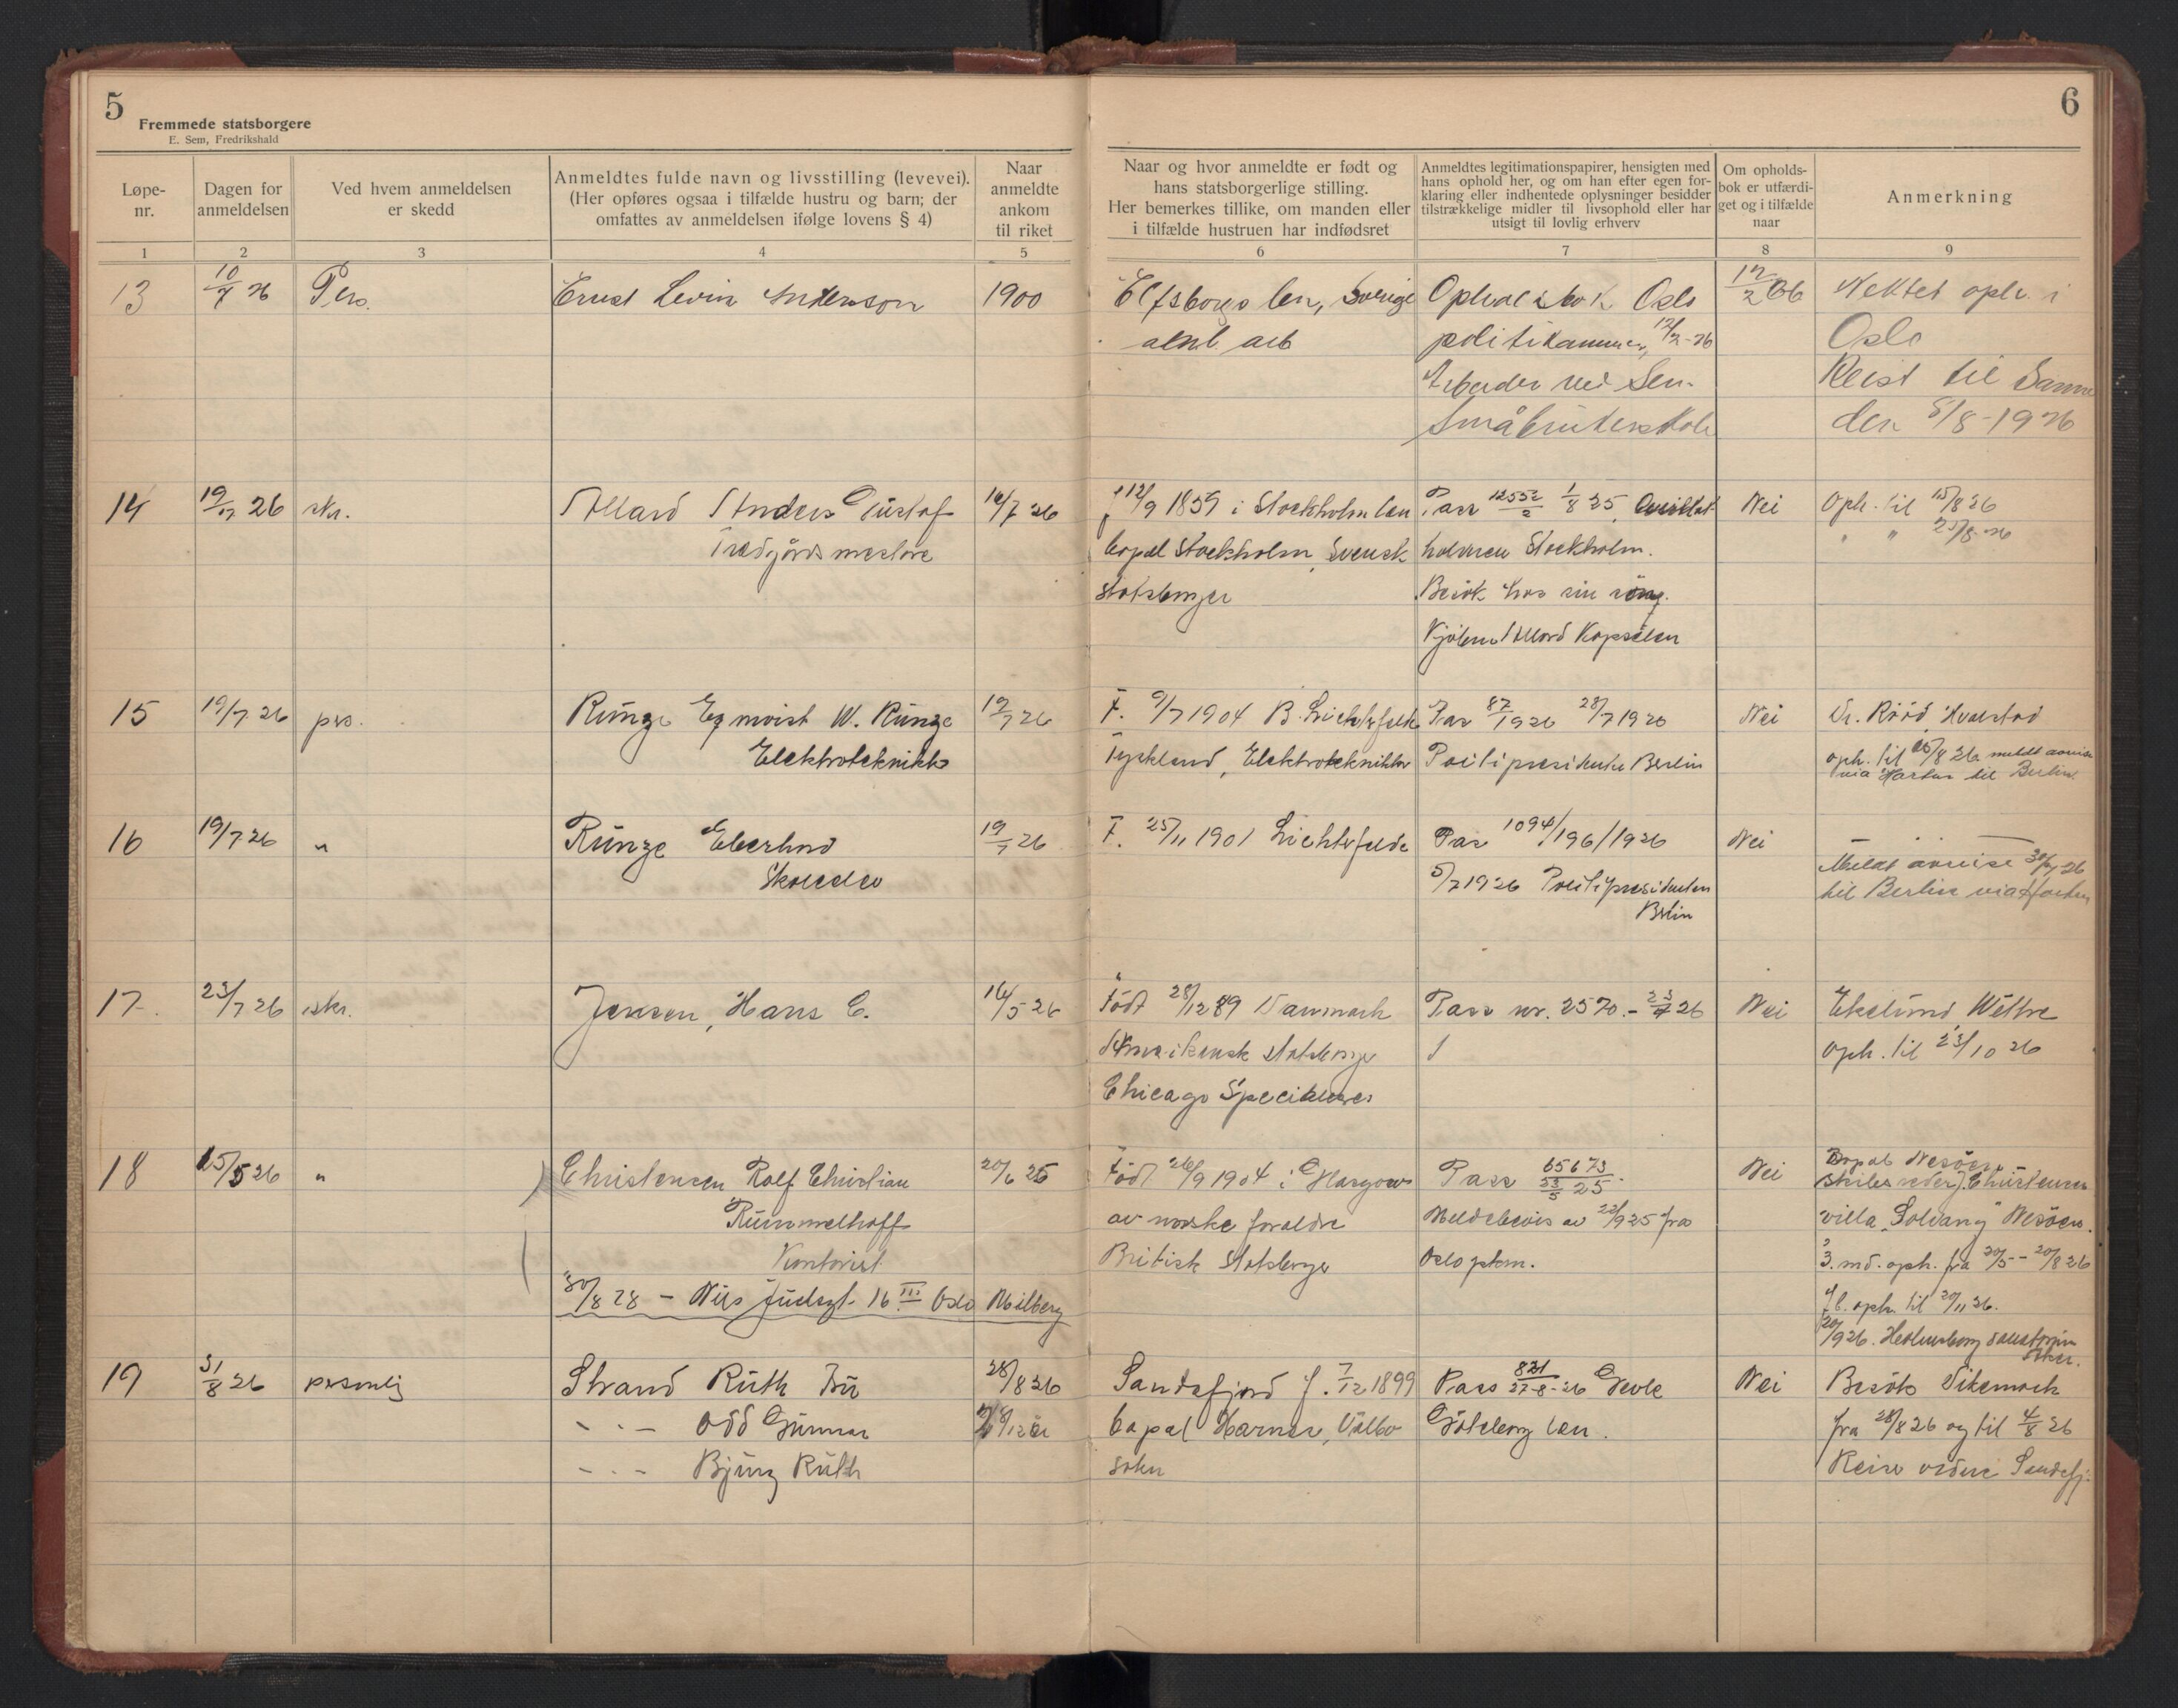 5
Fremmede statsborgere
E. Sem, Fredrikshald
6
Løpe-
nr.
Dagen for
anmeldelsen
Ved hvem anmeldelsen
er skedd
Anmeldtes fulde navn og livsstilling (levevei).
(Her opføres ogsaa i tilfælde hustru og barn; der
omfattes av anmeldelsen ifølge lovens § 4)
Naar
anmeldte
ankom
til riket
Naar og hvor anmeldte er født og
hans statsborgerlige stilling.
Her bemerkes tillike, om manden eller
i tilfælde hustruen har indfødsret
Anmeldtes legitimationspapirer, hensigten med
hans ophold her, og om han efter egen for-
klaring eller indhentede oplysninger besidder
tilstrækkelige midler til livsophold eller har
utsigt til lovlig erhverv
Om opholds-
bok er utfærdi-
get og i tilfælde
naar
Anmerkning
1 2 3 4 5 6 7 8 9
13 10/7 26 Pers.
Ernst Levin Anderson 1900
Elfsborgs len, Sverige
Opholdsbok Oslo
politikammer, 12/2-26
Arbeider ved Sem
Småbrukerskole
12/2 26
Nektet oph. i
Oslo
Reist til Samme
den 5/8-1926
14 19/7 26 skr.
Allard Anders Gustaf 16/7 26
Trädgårdsmestare
f 12/9 1859 i Stockholm län
bopæl Stockholm, Svensk
statsborger
Pass 12552/2 1/8 25,
Stockholm.
Besøk hos sin
Allard
Nei
Oph. til 15/8 26
" " 25/8-26
15 19/7 26 prs.
Runge Egmont W. Runge 19/7 26
Elektrotekniker
F. 9/7 1904 B. Lichterfelde
Tyskland, Elektrotekniker
Pas 87/1926 28/7 1920
Politipresidenten Berlin
Nei
Dr. Rööd Hvalstad
oph. til 15/8 26 meldt avreise
via Horten til Berlin.
16 19/7 26 "
Runge Eberhard 19/7 26
Skoleelev
F. 25/11 1901 Lichterfelde
Pas 1094/196/1926
5/7 1926 Politipresidenten
Brlin
Nei
Meldt avreise 30/7-26
til Berlin via Horten
17. 23/7 26 skr.
Jensen, Hans C. 16/5 26
Født 28/12 89 Danmark
Amerikansk statsborger
Chicago
Pass nr. 2570.- 23/4 26
Nei
Ekelund Wettre
oph. til 23/10 26
18 25/5 26 "
Christensen Rolf Christian 20/6 25
Rummelhoff
Kontorist
30/8 28 - Nils Juelsgt. 16 III Oslo Milberg
Født 26/9 1904 i Glasgow
av norske foreldre
Britisk Statsborger
Pass 65673
23/5 25.
Meldebevis av 22/9 25 fra
Oslo pkm.
Nei
Bopæl Nesøen
Christensen
villa "Solvang" Nesøen.
3. md. oph. fra 20/5 - 20/8 26
f.l. oph. til 20/11 26.
20/9 26. sanatorium
19 31/8 26 personlig
Strand Ruth Fru 28/8 26
- " - Odd Gunnar
- " - Bjørg Ruth
Sandefjord f. 7/12 1899
bopæl Harnäs, Valbo
sokn
Pass 821/27-8-26 Gevle
Göteborg len.
Nei
Besøk Dikemark
fra 28/8 26 og til 4/8 26
Reiser videre Sandefj.